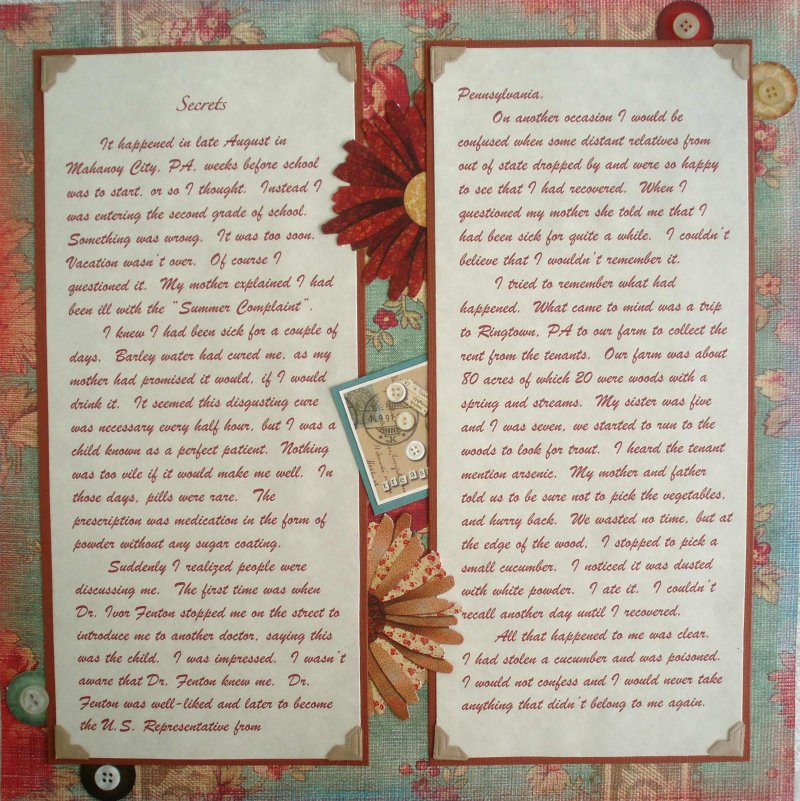 Secrets
It happened in late August in
Mahanoy City, PA, weeks before school
was to start, or so I thought. Instead I
was entering the second grade of school.
Something was wrong. It was too soon.
Vacation wasn't over. Of course I
questioned it. My mother explained I had
been ill with the "Summer Complaint".
I knew I had been sick for a couple of
days. Barley water had cured me, as my
mother had promised it would, if I would
drink it. It seemed this disgusting cure
was necessary every half hour, but I was a
child known as a perfect patient. Nothing
was too vile if it would make me well. In
those days, pills were rare. The
prescription was medication in the form of
powder without any sugar coating.
Suddenly I realized people were
discussing me. The first time was when
Dr. Ivor Fenton stopped me on the street to
introduce me to another doctor, saying this
was the child. I was impressed. I wasn't
aware that Dr. Fenton knew me. Dr.
Fenton was well-liked and later to become
the U.S. Representative from
Pennsylvania.
On another occasion I would be
confused when some distant relatives from
out of state dropped by and were so happy
to see that I had recovered. When I
questioned my mother she told me that I
had been sick for quite a while. I couldn't
believe that I wouldn't remember it.
I tried to remember what had
happened. What came to mind was a trip
to Ringtown, PA to our farm to collect the
rent from the tenants. Our farm was about
80 acres of which 20 were woods with a
spring and streams. My sister was five
and I was seven, we started to run to the
woods to look for trout. I heard the tenant
mention arsenic. My mother and father
told us to be sure not to pick the vegetables,
and hurry back. We wasted no time, but at
the edge of the wood, I stopped to pick a
small cucumber. I noticed it was dusted
with white powder. I ate it. I couldn't
recall another day until I recovered.
All that happened to me was clear.
I had stolen a cucumber and was poisoned.
I would not confess and I would never take
anything that didn't belong to me again.